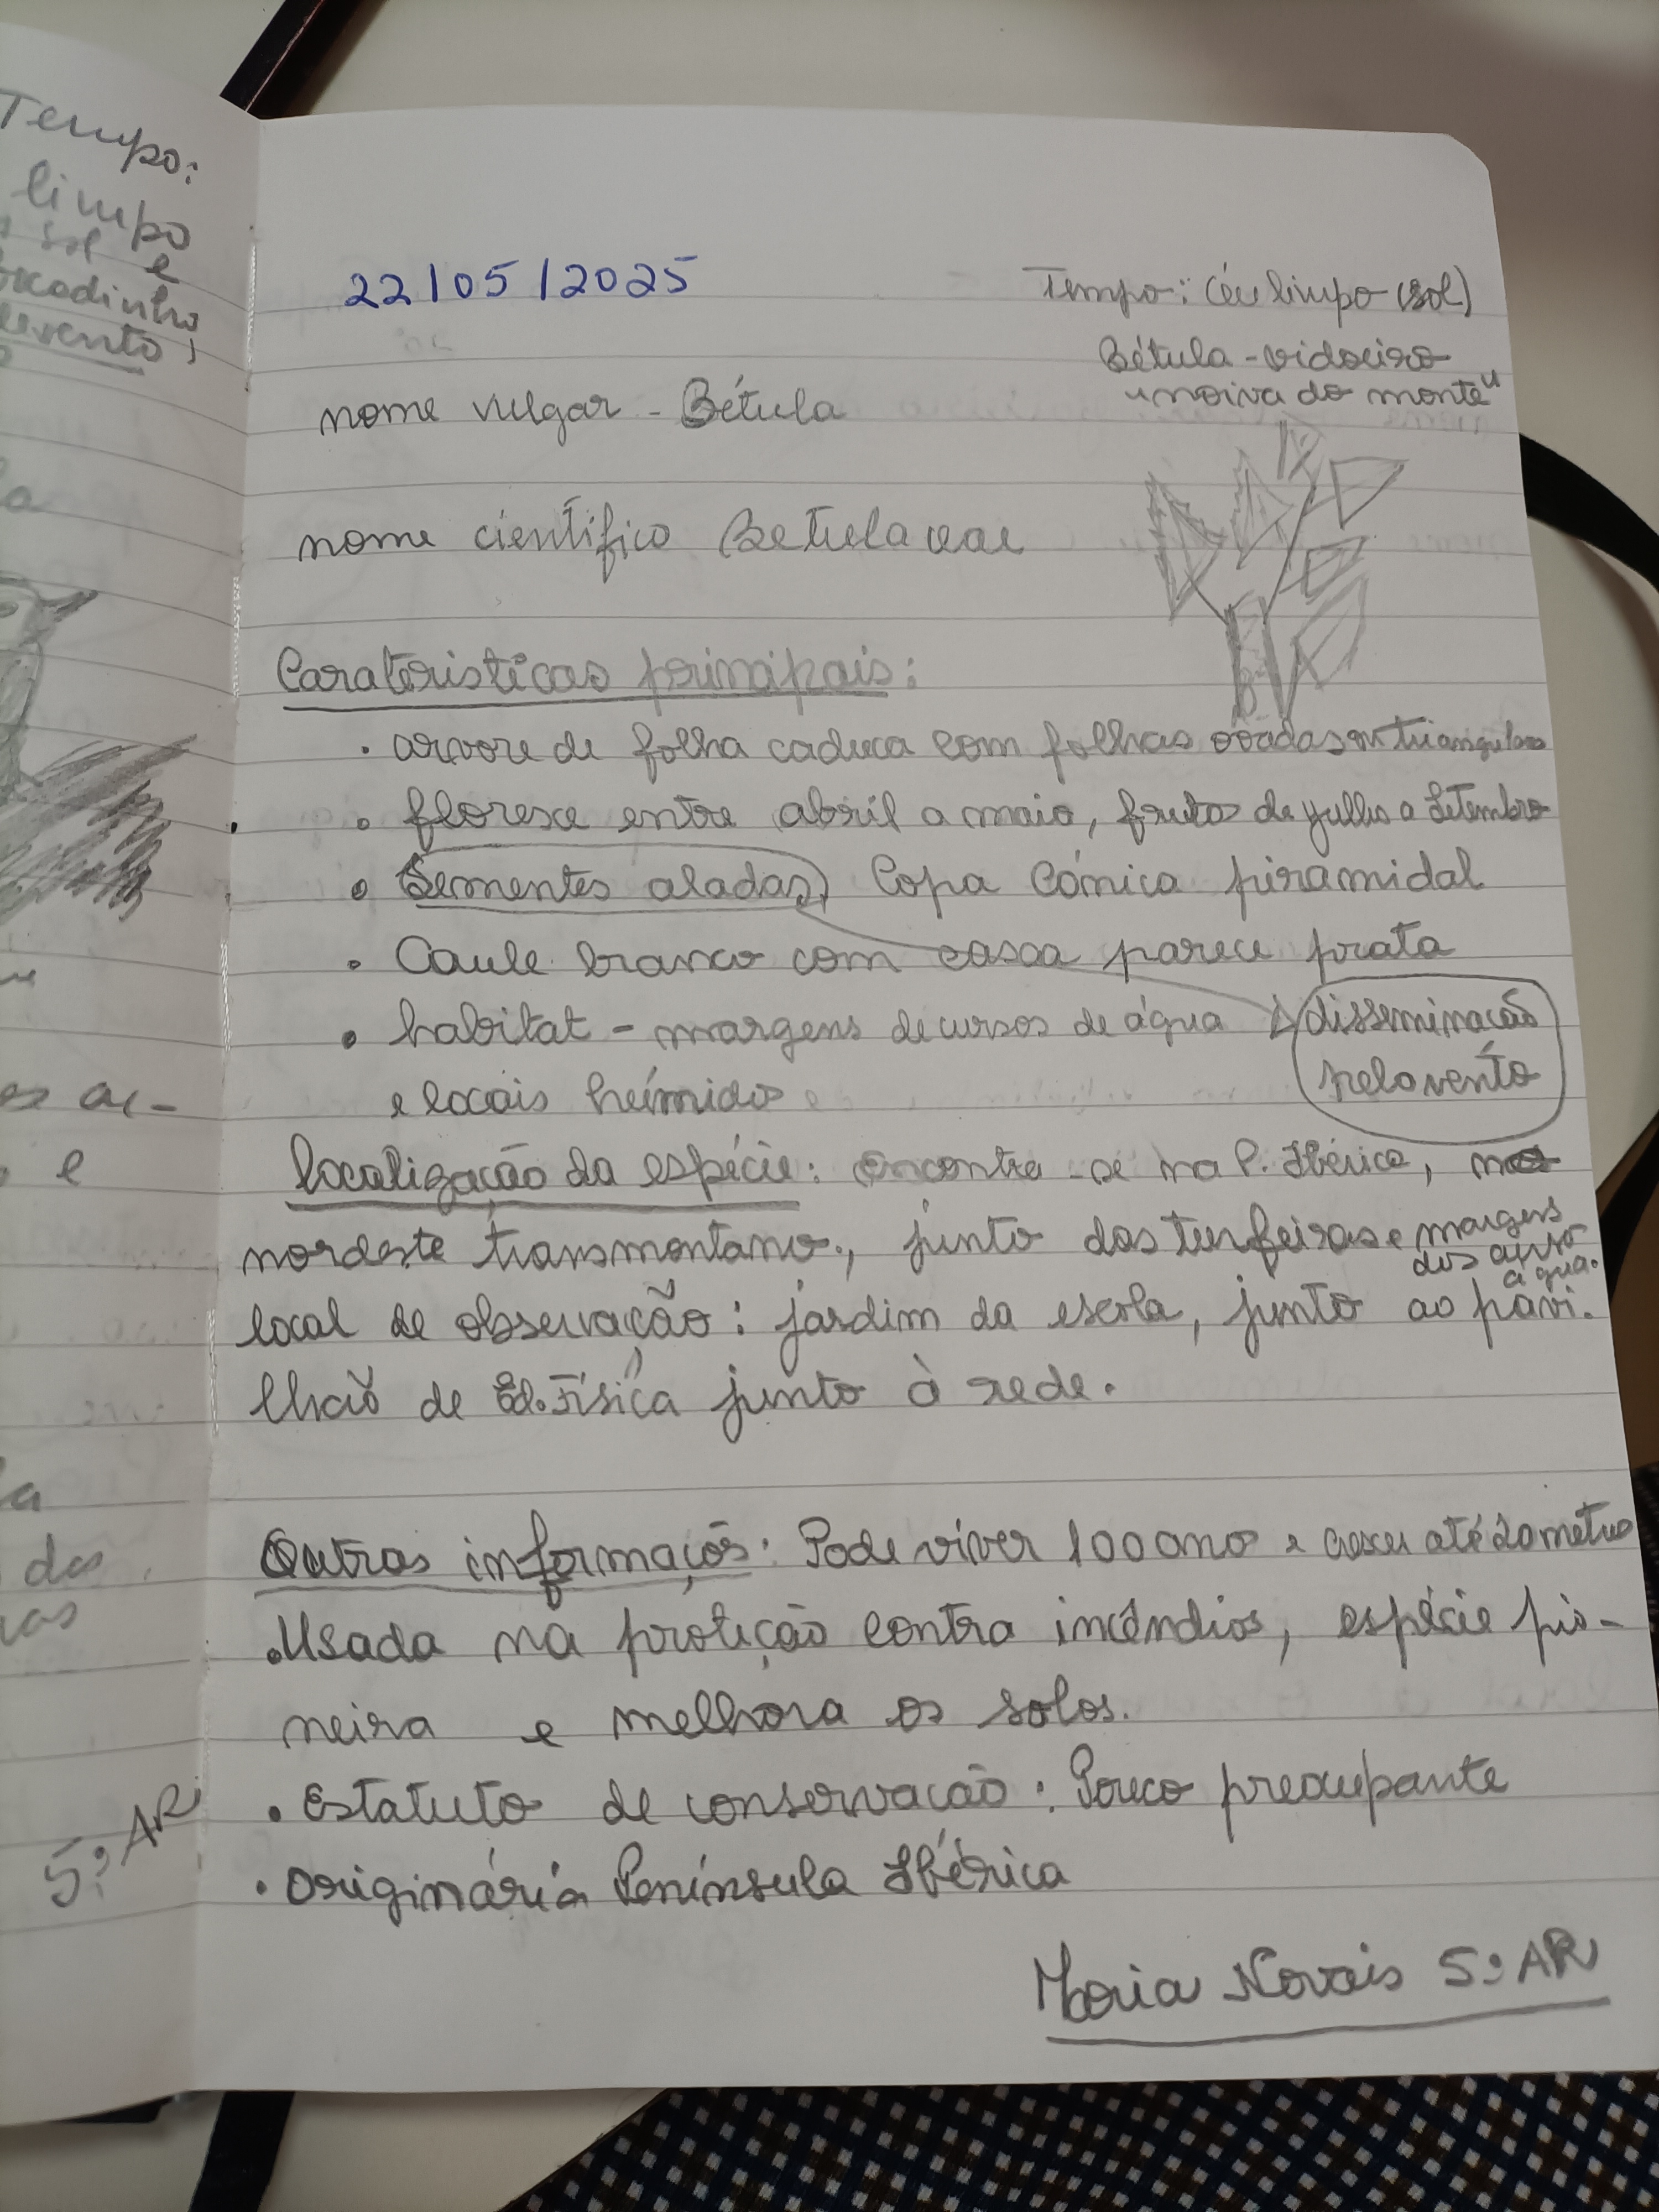 Tempo:
limpo
sol e
ocadinho
vento,
la
es ac-
e
la
das
5º AR
22/05/2025
Tempo: Céu limpo (sol)
Bétula - vidoeiro
"noiva do monte"
nome vulgar - Bétula
nome científico Betulaceae
Caraterísticas principais:
. arvore de folha caduca com folhas ovadas em triangulares
. floresce entre abril a maio, frutos de julho a Setembro
. Sementes aladas, Copa Cónica piramidal
. Caule branco com casca parece prata
. habitat - margens de cursos de água
disseminacão
pelo vento
e locais húmidos
localização da espécie: encontra-se na P. Ibérica, no
nordeste transmontano., junto das turfeiras e margens
dos curso
água.
local de observação: jardim da escola, junto ao pavi-
lhão de Ed. Física junto à rede.
Outras informações: Pode viver 100 ano e crescer até 20 metros
. Usada na proteção contra incêndios, espécie pio-
neira e melhora os solos.
. Estatuto de conservacão: Pouco preocupante
. Originária Península Ibérica
Maria Novais 5º AR